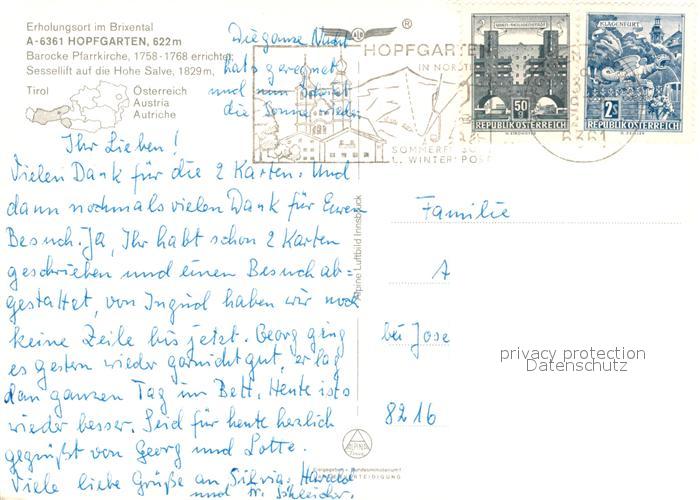 Erholungsort im Brixental
A-6361 HOPFGARTEN, 622 m
Barocke Pfarrkirche, 1758-1768 errichtet,
Sessellift auf die Hohe Salve, 1829 m,
Tirol
Österreich
Austria
Autriche
Die ganze Nacht
hats geregnet
und nun scheint
die Sonne wieder
Ihr Lieben!
Vielen Dank für die 2 Karten. Und
dann nochmals vielen Dank für Euren
Besuch. Ja, Ihr habt schon 2 Karten
geschrieben und einen Besuch ab=
gestattet, von Ingrid haben wir noch
keine Zeile bis jetzt. Georg ging
es gestern wieder garnicht gut, er lag
den ganzen Tag im Bett. Heute ists
wieder besser. Seid für heute herzlich
gegrüßt von Georg und Lotte.
Viele liebe Grüße an Silvia, Harald
und
HOPFGARTEN
IN NORDTI
SOMMERFRISCHE
U. WINTER
6361
®
50 g
REPUBLIK ÖSTERREICH
KLAGENFURT
2 S
REPUBLIK ÖSTERREICH
Alpine Luftbild Innsbruck
Familie
A
bei Jose
8216
ALPINE
privacy protection
Datenschutz